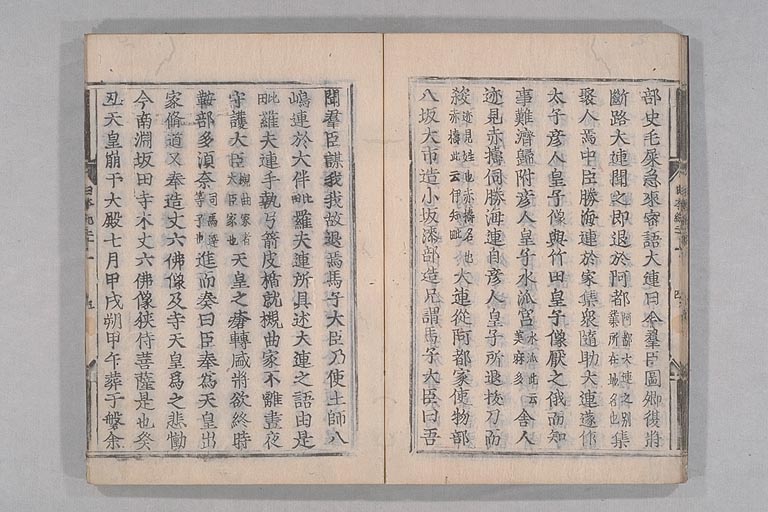 部史毛屎急來密語大連曰今羣臣圖卿復將
斷路大連聞之即退於阿都阿都大連之別業所在地名也集
聚人焉中臣勝海連於家集衆隨助大連遂作
太子彦人皇子像與竹田皇子像厭之俄而知
事難濟歸附彦人皇子於水派宮水派此云美麻多舍人
迹見赤檮伺勝海連自彦人皇子所退拔刀而
殺迹見姓也赤檮名也赤檮此云伊知毗大連從阿都家使物部
八坂大市造小坂漆部造兄謂馬子大臣曰吾
聞羣臣謀我我故退焉馬子大臣乃使土師八
嶋連於大伴毗羅夫連所具述大連之語由是
毗羅夫連手執弓箭皮楯就槻曲家不離晝夜
守護大臣槻曲家者大臣家也天皇之瘡轉盛將欲終時
鞍部多須奈司馬達等子也進而奏曰臣奉爲天皇出
家脩道又奉造丈六佛像及寺天皇爲之悲慟
今南淵坂田寺木丈六佛像挾侍菩薩是也癸
丑天皇崩于大殿七月甲戌朔甲午葬于磐余